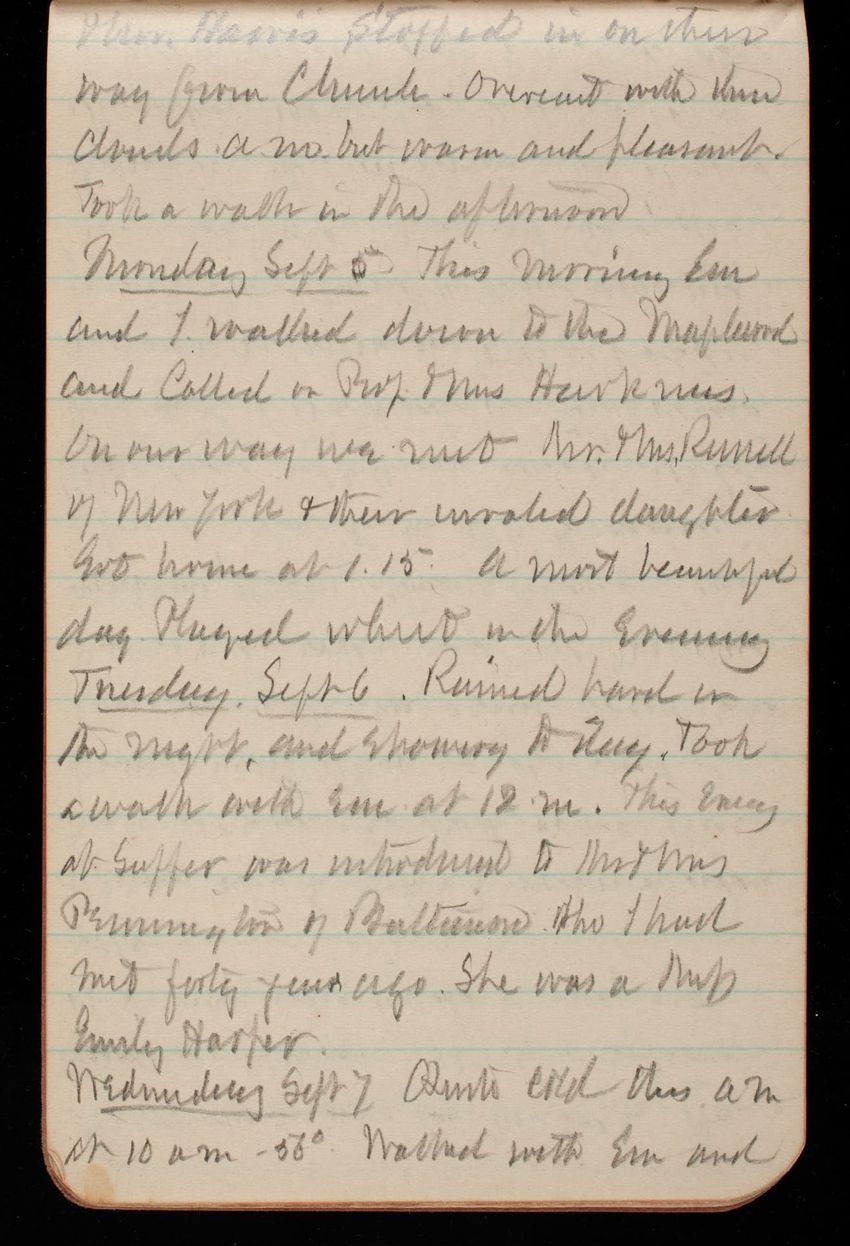 Mrs. Harris stopped in on their
way from Church. Overcast with thin
clouds a m. but warm and pleasant.
Took a walk in the afternoon
Monday Sept 5 This morning Em
and I walked down to the Maplewood
and Called on Prof & Mrs Harkness.
On our way we met Mr. & Mrs. Russell
of New York & their invalid daughter
Got home at 1.15. A most beautiful
day Played whist in the Evening
Tuesday, Sept 6. Rained hard in
the night, and showery to day. Took
a walk with Em at 12 m. This Eveng
at Supper was introduced to Mr & Mrs
Pennington of Baltimore. Who I had
met forty years ago. She was a Miss
Emily Harper.
Wednesday Sept 7 Quite cold this a m
at 10 a m - 56° Walked with Em and